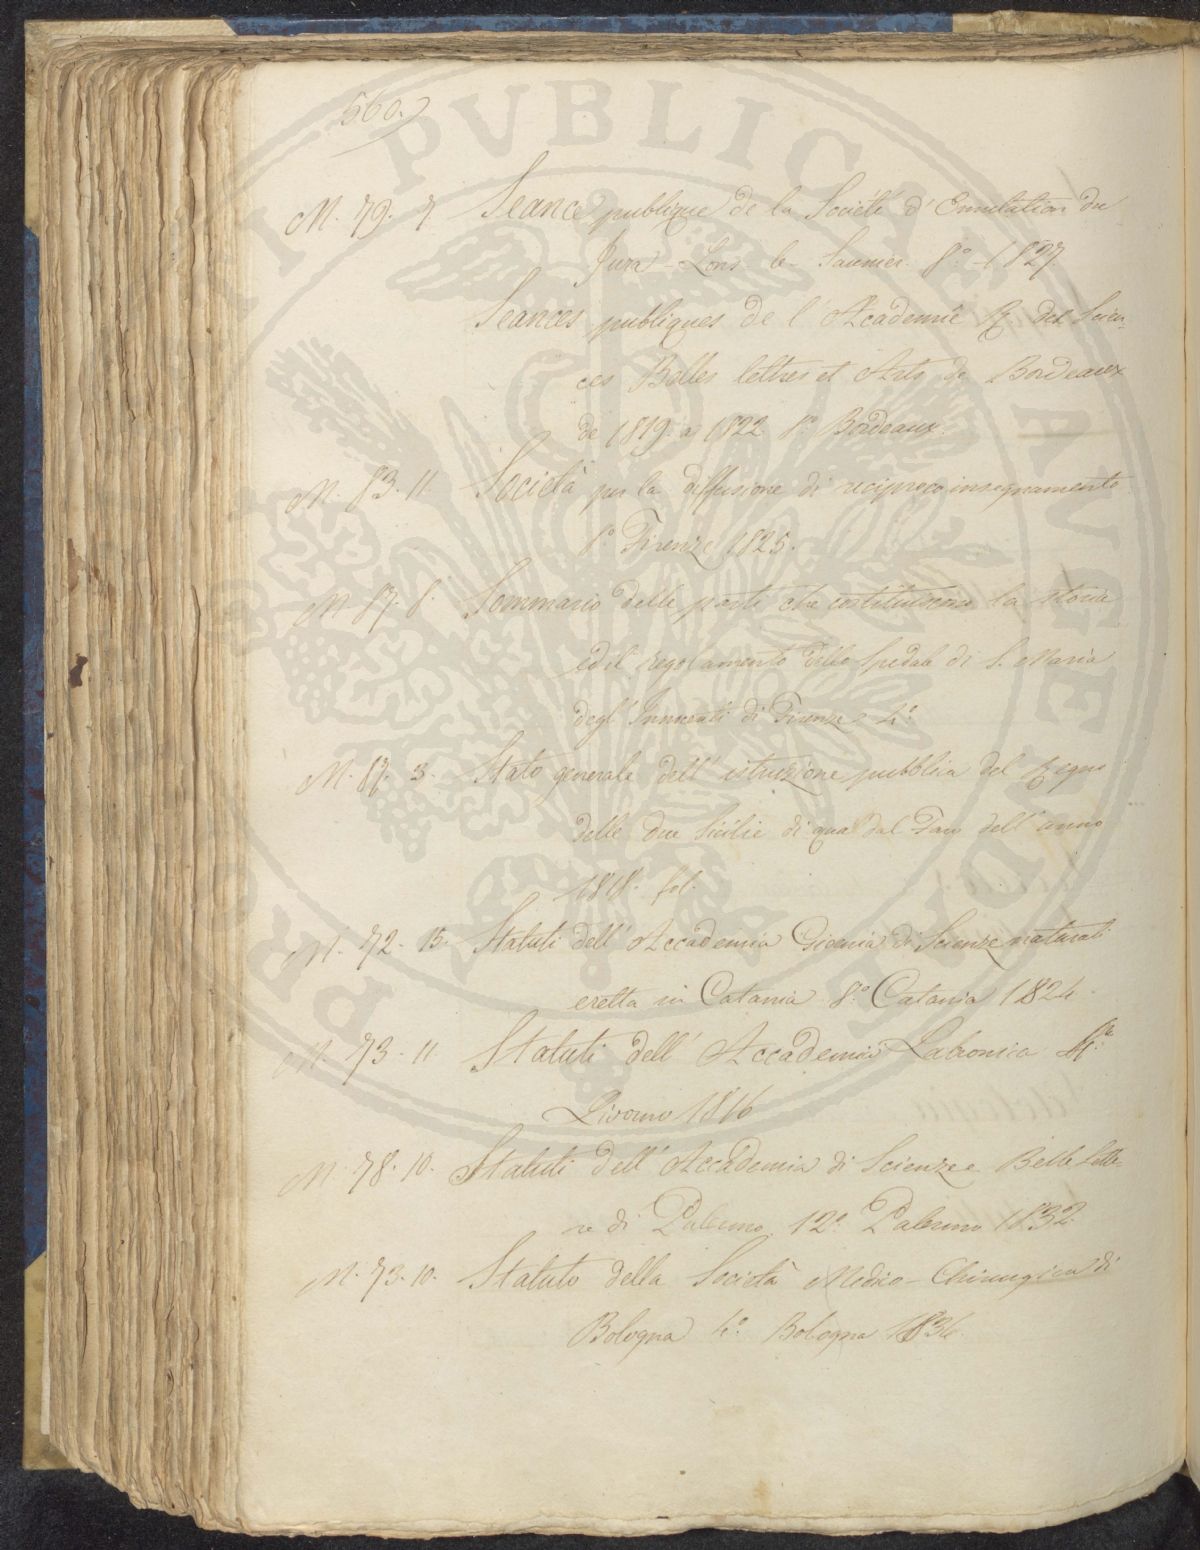 560.
M. 79. 7. Seance publique de la Société d'Emulation du
Jura - Lons - le - Saunier. 8.° - 1827
Seances publiques de l'Academie R. des Scien-
ces Belles lettres et Arts de Bordeaux
de 1819. a 1822 8.° Bordeaux.
M. 83. 11. Società per la diffusione di reciproco insegnamento
8.° Firenze 1825.
M. 87. 8. Sommario delle parti che costituiscono la storia
ed il regolamento dello Spedale di S. Maria
degl'Innocenti di Firenze 4.°
M. 87. 3. Stato generale dell'istruzione pubblica del Regno
delle due Sicilie di qua dal Faro dell'anno
1818. fol.
M. 72. 15. Statuti dell'Accademia Gioenia di Scienze naturali
eretta in Catania 8.° Catania 1824.
M. 73. 11 Statuti dell'Accademia Labronica
Livorno 1816
M. 78. 10. Statuti dell'Accademia di Scienze e Belle Lette-
re di Palermo. 12.° Palermo 1832.
M. 73. 10. Statuto della Società Medico - Chirurgica di
Bologna 4.° Bologna